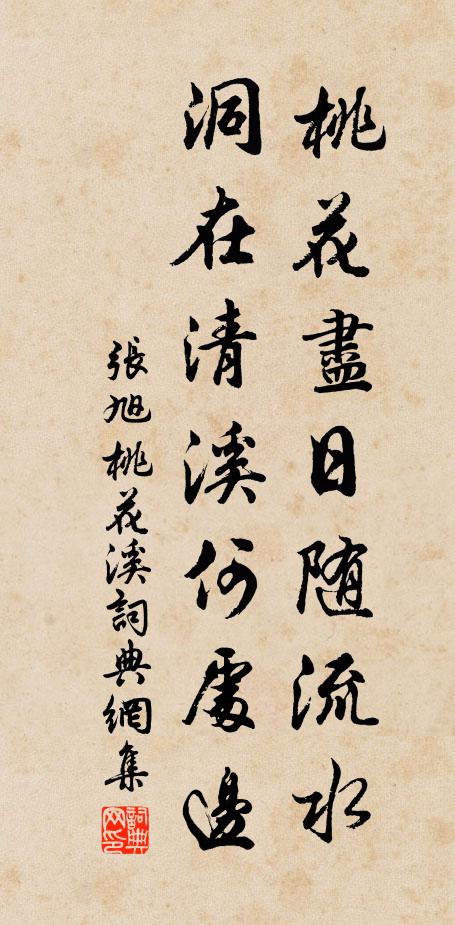 桃花盡日随流水
洞在清溪何處邊
張旭桃花溪詞典網集
詞典网印